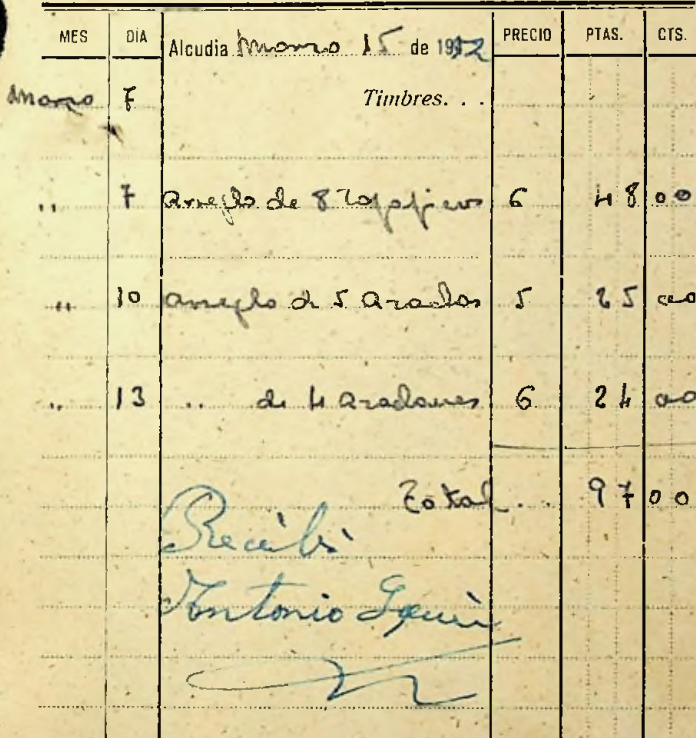 MES DÍA Alcudia Marzo 15 de 1942 PRECIO PTAS. CTS.
Marzo 7 Timbres. . .
„ 7 arreglo de 8 6 48 00
„ 10 arreglo de 5 arados 5 25 00
„ 13 „ de 4 aradones 6 24 00
Total . . 97 00
Recibí
Antonio